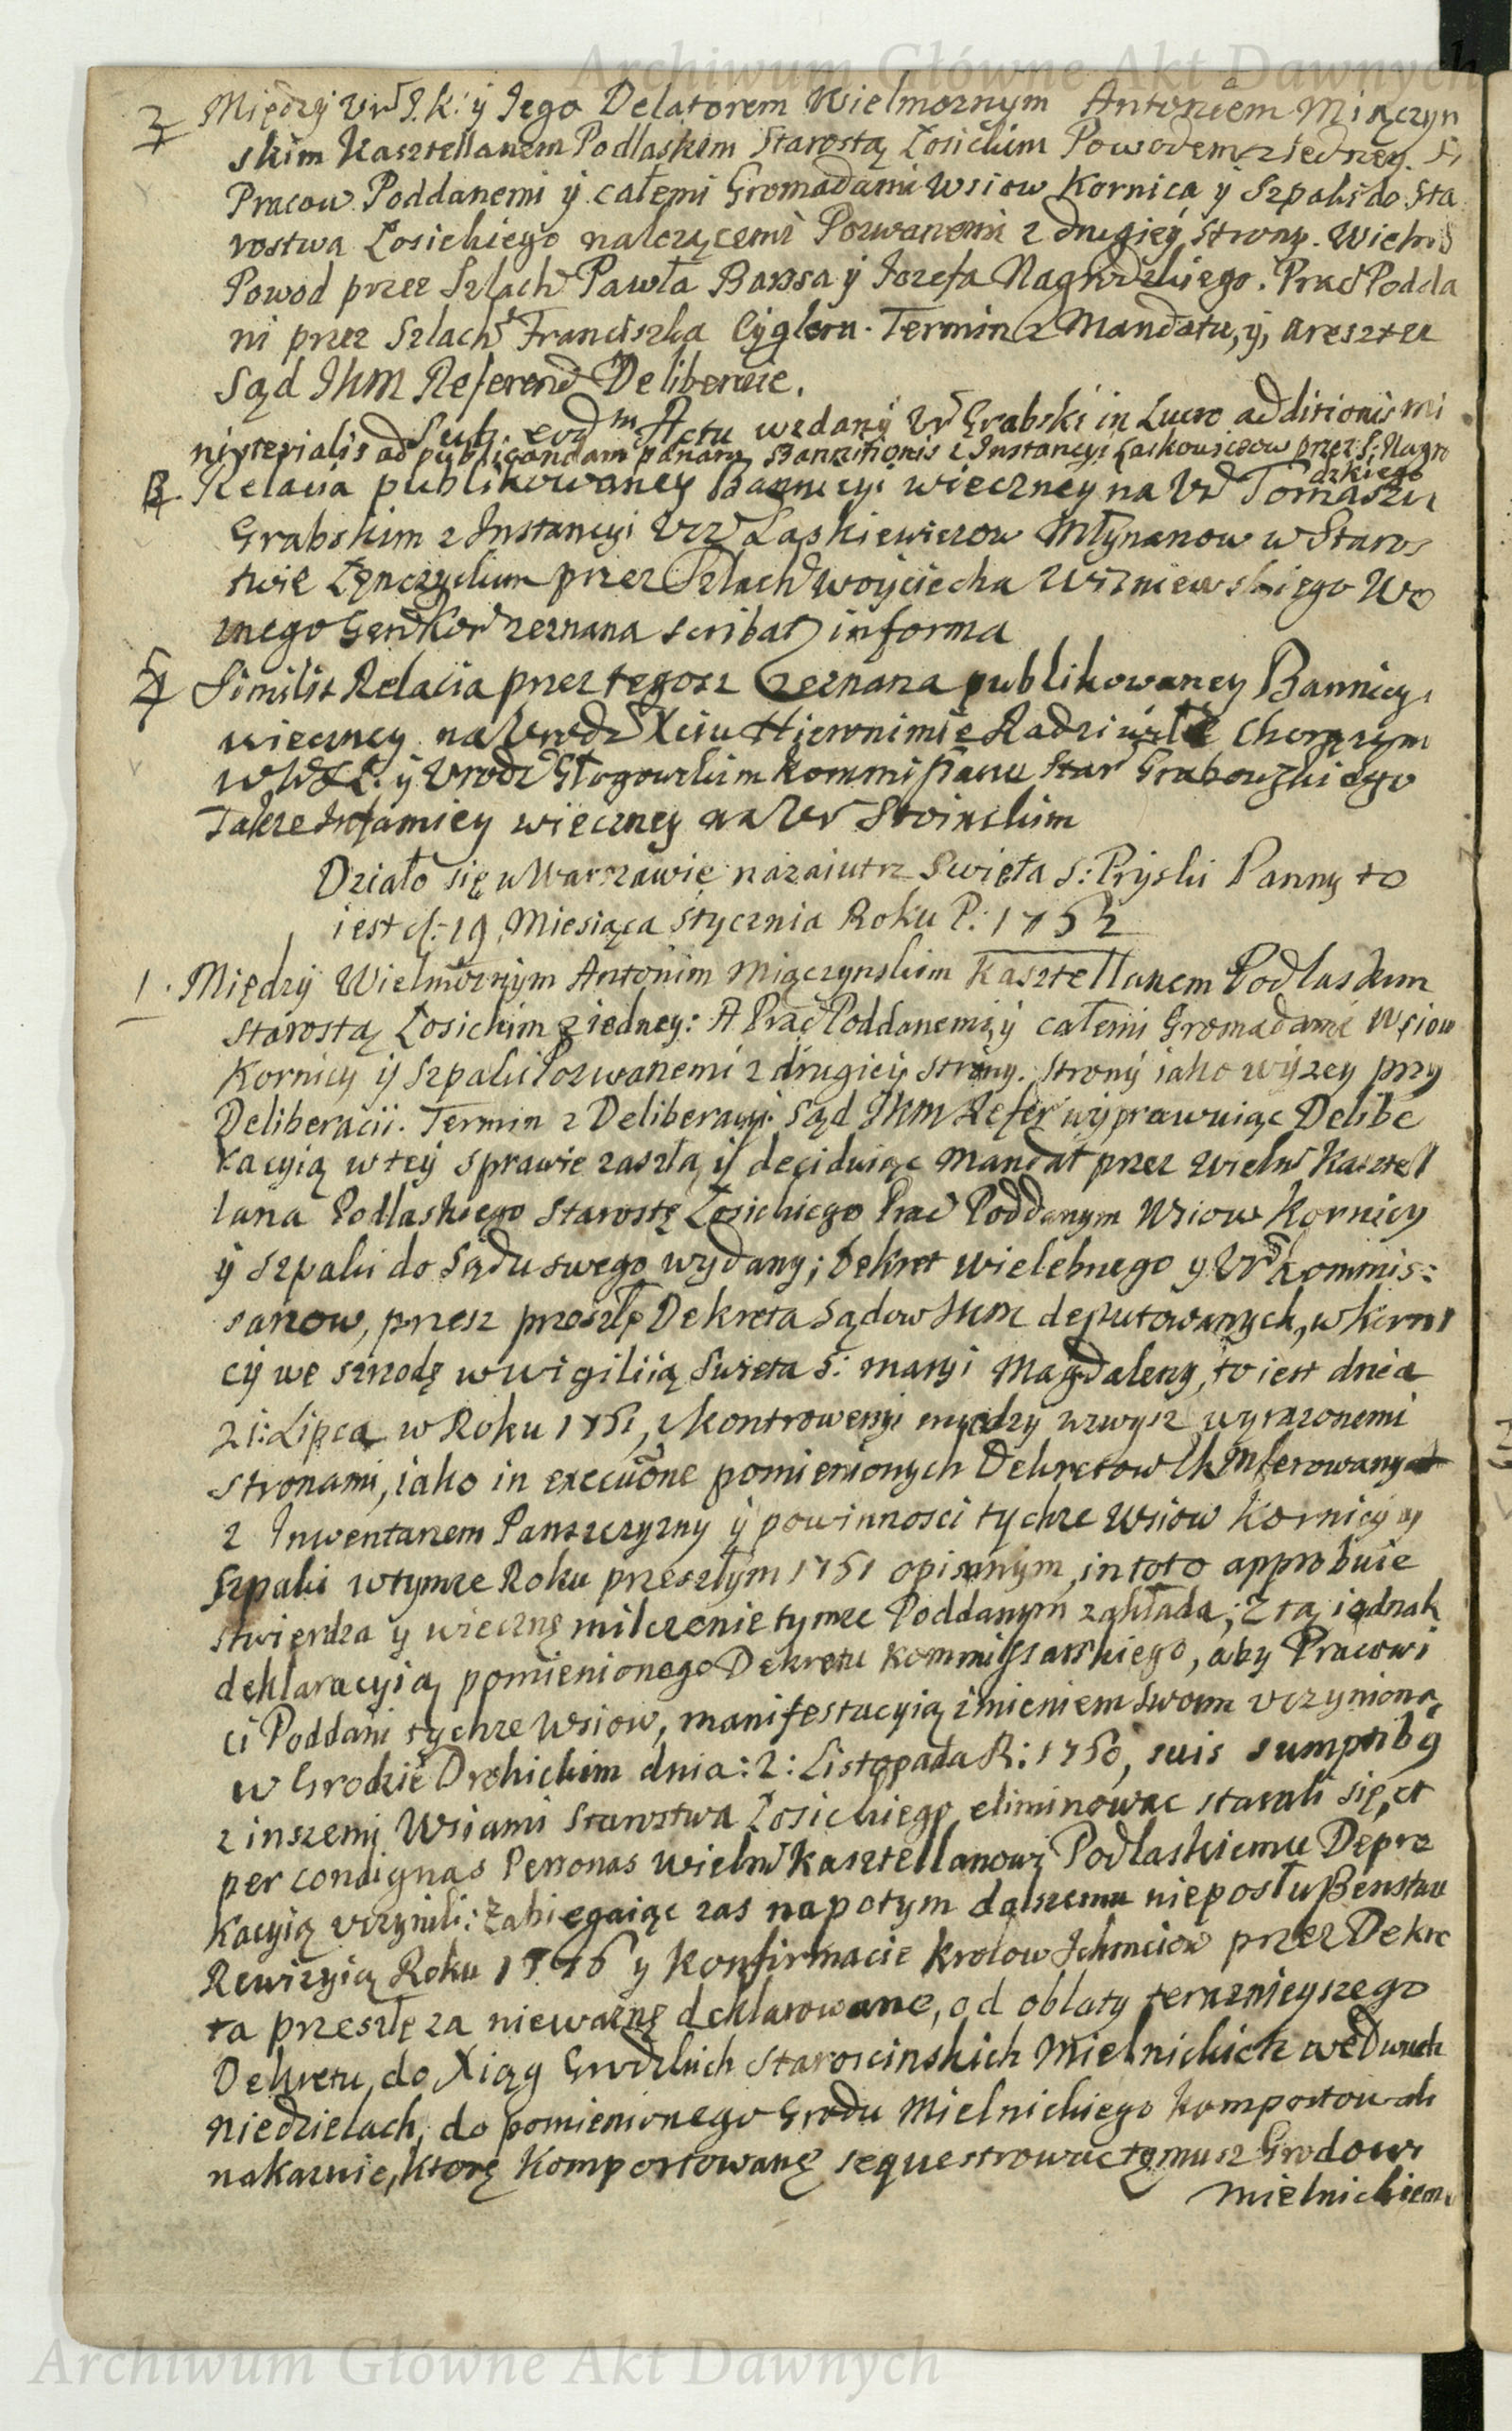 Archiwum Główne Akt Dawnych
2 Między Ur J.K: y Jego Delatorem Wielmoznym Antoniem Miączyn
skim Kasztellanem Podlaskim Starostą Łosickim Powodem z iedney.
Pracow. Poddanemi ÿ całemi Gromadami Wsiow Kornica ÿ Szpaki do Sta
rostwa Łosickiego nalezącemi Pozwanemi z drugieÿ Strony. Wielm
Powod przez Szlach Pawła Barssa ÿ Jozefa Nagrodzkiego. Prac Podda
ni przez Szlach Franciszka Cÿglera. Termin z Mandatu, ÿ, aresztu
Sąd JKM Referend Deliberuie.
Sub eodm Actu wzdany Ur Grabski in Lucro additionis mi
nisterialis ad publicandam pœnam Bannitionis z Instancyi Laskowiczow przez S: Nagro
dzkiego
3. Relacia publikowaney Bannicyi wieczney na Ur Tomaszu
Grabskim z Instancyi Urr Laskiewiczow Młynarow w Staros
twie Łęnczyckim przez Szlach Woyciecha Wiszniewskiego Wo
znego Gen Kor zeznana scribat informa
4 Similis Relacia przez tegosz zeznana publikowaney Bannicyi
wieczney na Urodz Xciu Hieronimie Radziwile Chorązym
W W X L: y Urodz Głogowskim Kommissarzu Star Grabowskiego
Takze Infamiey wieczney na Ur Stoinskim
Działo się w Warszawie nazaiutrz Swięta S: Pryski Panny to
iest d: 19 Miesiąca Stycznia Roku P: 1752
1. Międzÿ Wielmoznÿm Antonim Miączynskim Kasztellanem Podlaskim
Starostą Łosickim z iedney: A Prac Poddanemi, ÿ całemi Gromadami Wsiow
Kornicy ÿ Szpaki Pozwanemi z drugieÿ strony. Stronÿ iako wÿzey przy
Deliberacii. Termin z Deliberacyi. Sąd JKM Refer wyprawuiąc Delibe
racyią w teÿ sprawie zaszłą, ÿ deciduiąc Mandat przez Wielm Kasztel
lana Podlaskiego Starostę Łosickiego Prac Poddanym Wsiow Kornicy
ÿ Szpaki do Sądu swego wydany; Dekret wielebnego y Ur Kommis:
sarzow, przesz przeszłe Dekreta Sądow JKM deputowanych, w Korni
cÿ we srzodę w wigiliią Swieta S: Maryi Magdaleny, to iest dnia
21: Lipca w Roku 1751, z kontrowersyi między wzwysz wyrazonemi
stronami, iako in executione pomienionych Dekretow JKM ferowany
z Inwentarzem Panszczyzny ÿ powinnosci tychze Wsiow Kornicy y
Szpaki w tymze Roku przeszłym 1751 opisanÿm, in toto approbuie
stwierdza y wieczne milczenie tymze Poddanym zakłada; Z tą iednak
deklaracyią pomienionego Dekretu Kommissarskiego, aby Pracowi
ci Poddani tychze Wsiow, manifestacyią imieniem swoim uczynioną
w Grodzie Drohickim dnia: 2: Listopada R: 1750, suis sumptibg
z inszemi Wsiami Starostwa Łosickiego eliminowac starali się, et
per condignas Personas Wielm Kasztellanowi Podlaskiemu Depre
kacyią uczynili: Zabiegaiąc zas napotym dalszemu nieposłuszenstwu
Rewizyią Roku 1576 y Konfirmacie Krolow Ichmciow przez Dekre
ta przeszłe za niewazne deklarowane, od oblaty teraznieyszego
Dekretu, do Xiąg Grodzkich Staroscinskich Mielnickich we Dwuch
Niedzielach, do pomienionego Grodu Mielnickiego komportowali
nakazuie, ktore Komportowane sequestrowac temusz Grodowi
Mielnickiemu
Archiwum Główne Akt Dawnych